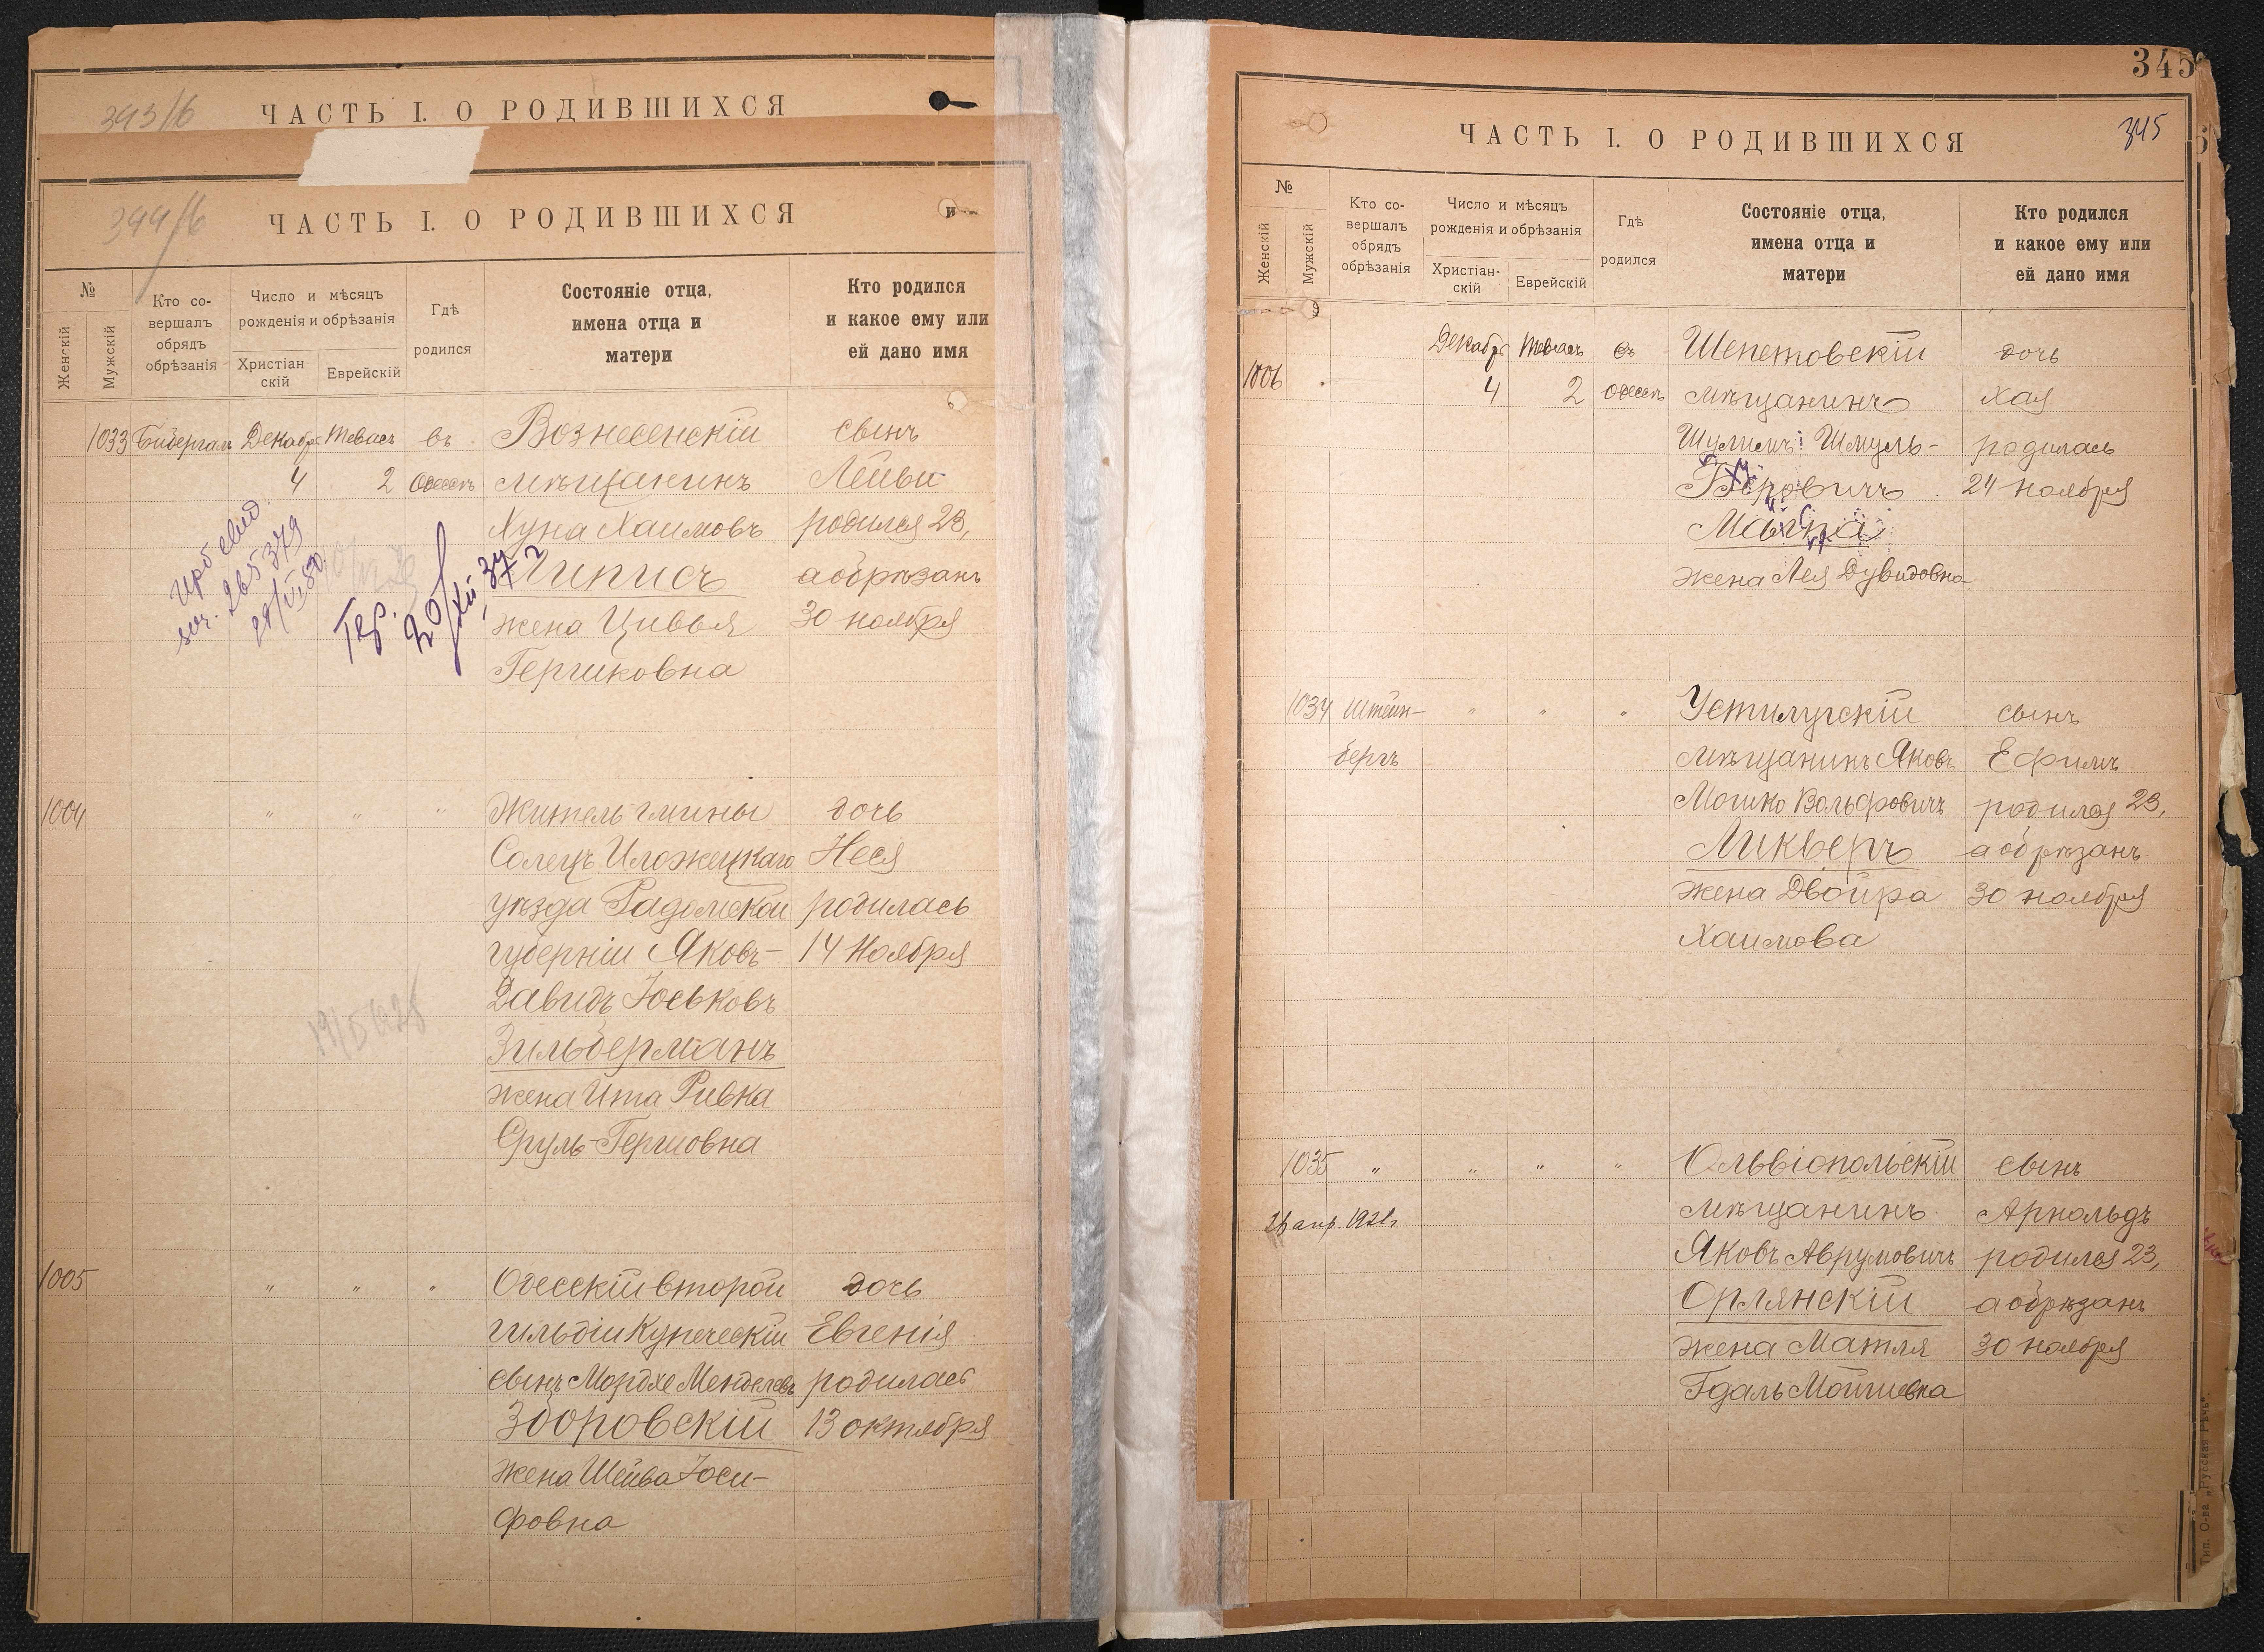 393/б
ЧАСТЬ I. О РОДИВШИХСЯ
394/б
ЧАСТЬ I. О РОДИВШИХСЯ
№
Женскій
Мужскій
Кто со-
вершалъ
обрядъ
обрѣзанія
Число и мѣсяцъ
рожденія и обрѣзанія
Христіан
скій
Еврейскій
Гдѣ
родился
Состояніе отца,
имена отца и
матери
Кто родился
и какое ему или
ей дано имя
1033 Бибергалъ Декабря Тевасъ въ Вознесенскій сынъ
4 2 Одессѣ мѣщанинъ Лейви
Хуна Хаимовъ родился 23,
а обрѣзанъ
жена Цивья 30 ноября
Гершковна
265379
20/XII-37 г
1004 " " " Житель гмины дочь
Солецъ Иложецкаго Неся
уѣзда Радомской родилась
губерніи Яковъ- 14 Ноября
Давидъ Юськовъ
Зильберманъ
жена Ита Ривка
Сруль-Гершовна
1005 " " " Одесскій второй дочь
гильдіи купеческій Евгенія
сынъ Мордхе Менделевъ родилась
Зборовскій 13 октября
жена Шейва Іоси-
фовна
345
ЧАСТЬ I. О РОДИВШИХСЯ
345
№
Женскій
Мужскій
Кто со-
вершалъ
обрядъ
обрѣзанія
Число и мѣсяцъ
рожденія и обрѣзанія
Христіан-
скій
Еврейскій
Гдѣ
родился
Состояніе отца,
имена отца и
матери
Кто родился
и какое ему или
ей дано имя
1006 Декабря Тевасъ въ Шепетовскій дочь
4 2 Одессѣ мѣщанинъ Хая
Шулимъ Шмуль- родилась
Беровичъ 24 ноября
жена Лея Дувидовна
1034 Штейн- " " " Устилугскій сынъ
бергъ мѣщанинъ Яковъ Ефимъ
Мошко Вольфовичъ родился 23,
Ликверъ а обрѣзанъ
жена Двойра 30 ноября
Хаимова
1035 " " " " Ольвіопольскій сынъ
26 апр. 1921г. мѣщанинъ Арнольдъ
Яковъ Аврумовичъ родился 23,
Орлянскій а обрѣзанъ
жена Матля 30 ноября
Гдаль Мойшевна
Тип. О-ва „Русская Рѣчь“